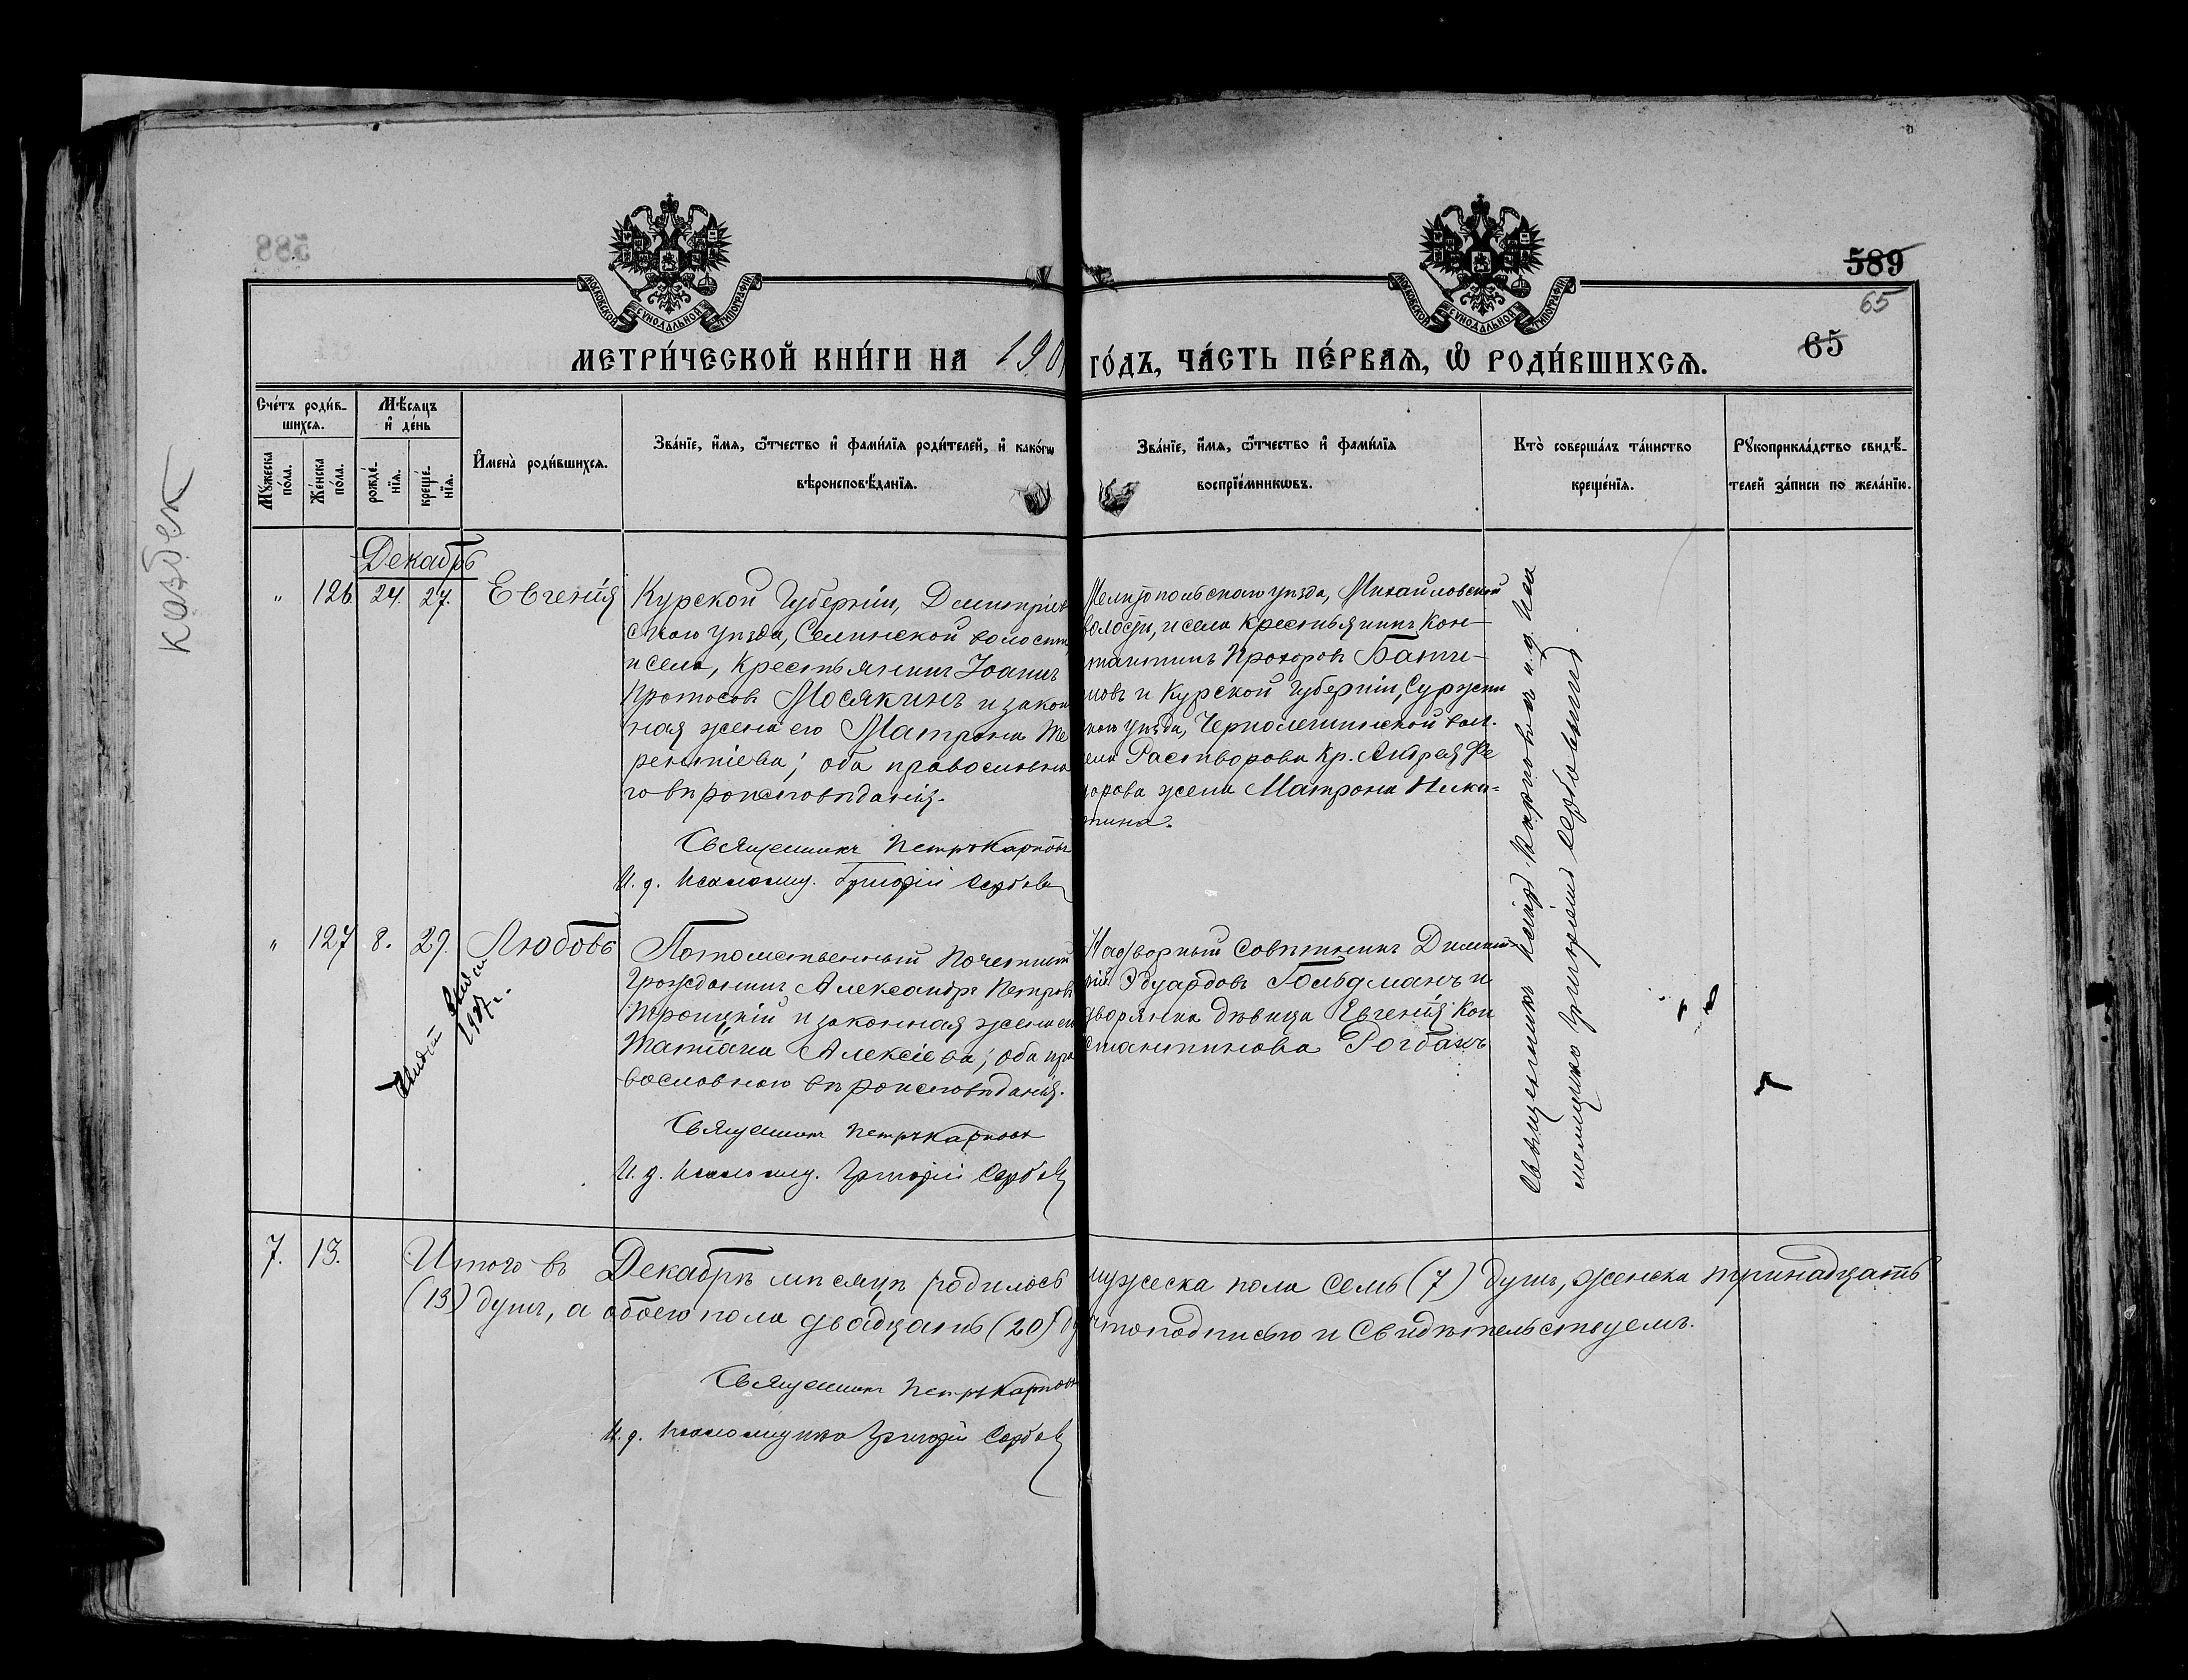 589
65
65
МОСКОВСКОЙ СѴНОДАЛЬНОЙ ТИПОГРАФІИ
МОСКОВСКОЙ СѴНОДАЛЬНОЙ ТИПОГРАФІИ
МЕТРИ́ЧЕСКОЙ КНИ́ГИ НА 190 ГО́ДЪ, ЧА́СТЬ ПЕ́РВАѦ, Ѡ҆ РОДИ́ВШИХСѦ.
Сче́тъ роди́в-
шихсѧ.
Мѣ́сяцъ
и҆ де́нь
Мꙋ́жеска по́ла.
Же́нска по́ла.
рожде́-
нїѧ.
креще́-
нїѧ.
И҆мена̀ роди́вшихсѧ.
Зва́нїе, и҆́мѧ, ѻ҆́тчество и҆ фами́лїѧ роди́телей, и҆ како́гѡ
вѣроисповѣ́данїѧ.
Зва́нїе, и҆́мѧ, ѻ҆́тчество и҆ фами́лїѧ
воспрїе́мникѡвъ.
Кто̀ соверша́лъ та́инство
креще́нїѧ.
Рꙋкоприкла́дство свидѣ́-
телей за́писи по жела́нїю.
казбек
Декабрь
" 126. 24. 27. Евгенія
Курской Губерніи, Дмитріев
скаго уѣзда, Селинской волости
и села, Крестьянинъ Іоаннъ
Протосов Мосякинъ и закон
ная жена его Матрона Те
рентіева; оба православна
го вѣроисповѣданія.
Священникъ Петръ Карповъ
И. д. псаломщ. Григорій Сербов
Мелитопольскаго уѣзда, Михайловской
волости, и села Крестьянинъ Кон-
стантинъ Прохоров
новъ и Курской Губерніи,
скаго уѣзда, вол.
села Растворова Кр. Андрея Фе
дорова жена Матрона Ники-
тина.
Священникъ Петръ Карповъ и и. д. пса
ломщика Григорій Сербовъ
" 127 8. 29. Любовь
1937 г.
Потомственный почетный
Гражданинъ Александръ Петров
Троицкій и законная жена его
Татіана Алексіева; оба пра
вославнаго вѣроисповѣданія.
Священникъ Петръ Карповъ
И. д. псаломщ. Григорій Сербов
Надворный Совѣтникъ Димит-
рій Эдуардовъ Гольдманъ и
дворянка дѣвица Евгенія Кон
стантинова
7. 13. Итого въ Декабрѣ мѣсяцѣ родилось мужеска пола семь (7) душъ, женска тринадцать
(13) душъ, а обоего пола двадцать (20) ду что подписью и свидѣтельствуемъ.
Священникъ Петръ Карповъ
И. д. псаломщика Григорій Сербов